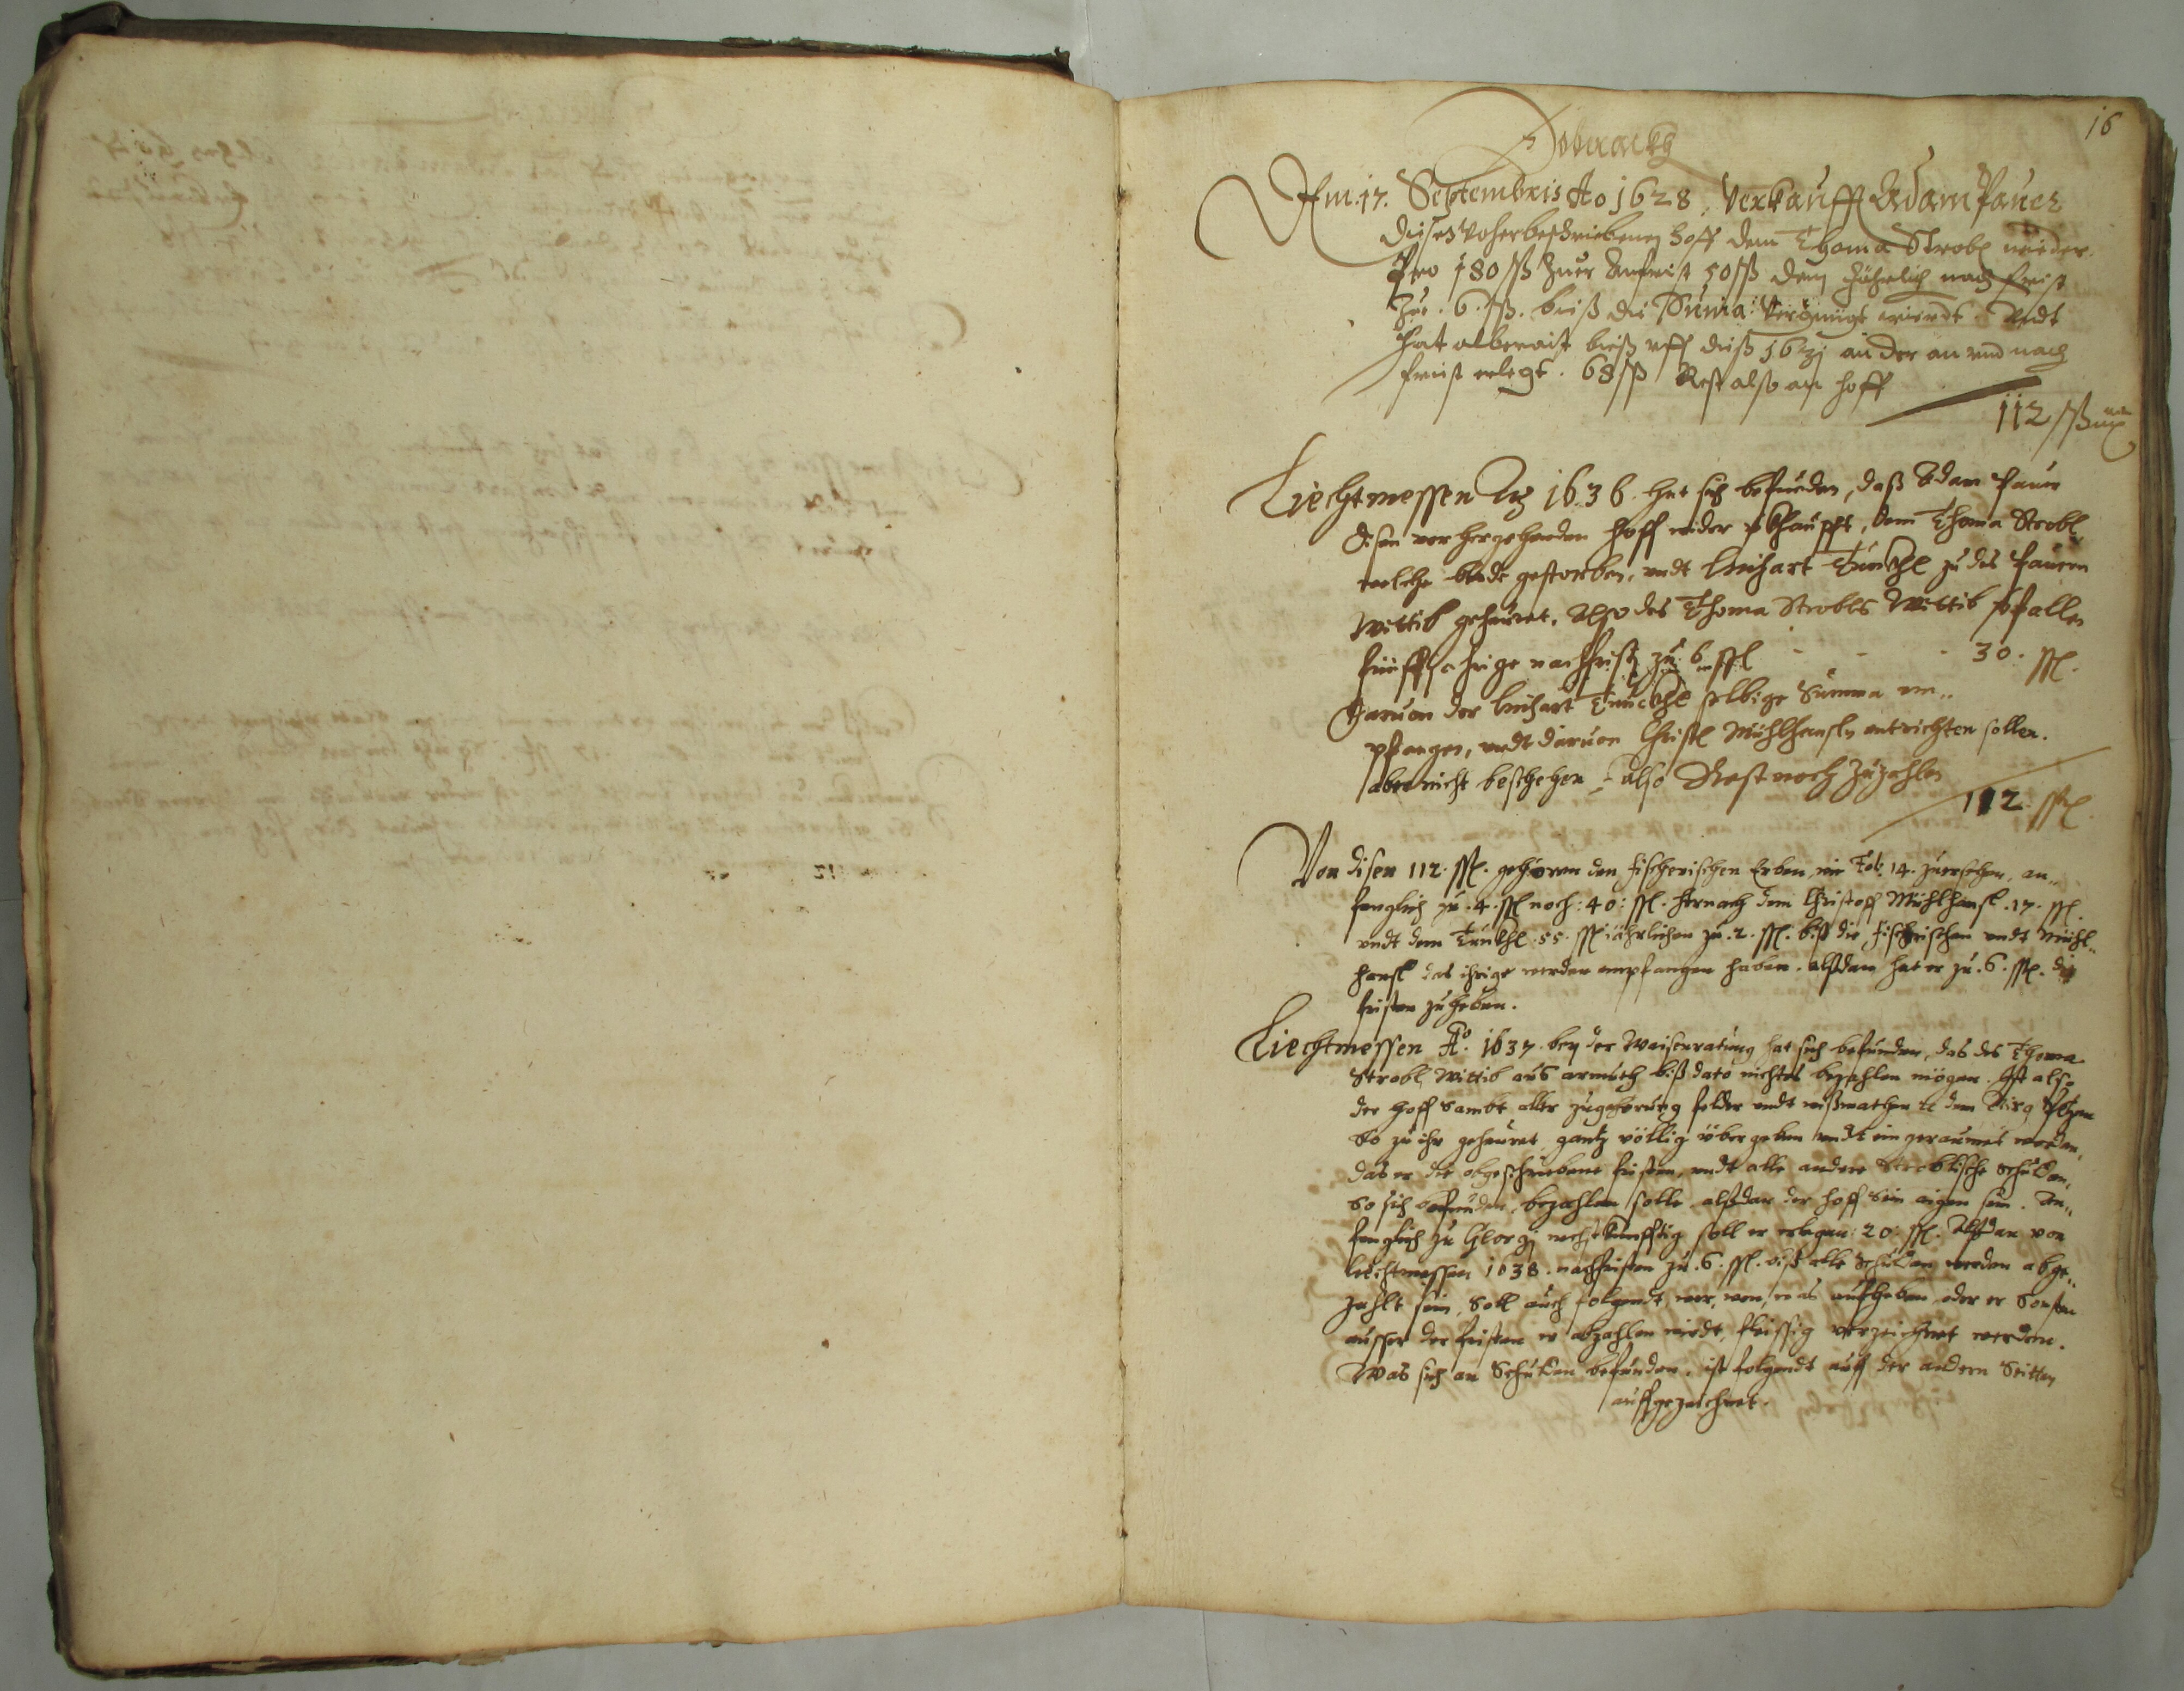 16
Dobrackh
Am. 17. Septembris Ao 1628. Verkaufft Adam Pauer
diesen Voherbeschriebenen hoff dem Thoma Strobl wieder
Pro 180 ſß Zuer Anfrist 50 ſß den Jährlich nach frist
Zue . 6 . ſß. bieß die Suma: Vergnügt wierdt. Undt
hat alberait bieß uff dieß 1631 an der an und nach
friest erlegt . 68 ſß Rest also am hoff
112 ſß
Liechtmessen Ao 1636. hat sich befunden, daß Adam Pauer
disen vorhergehenden hoff wider vkhaufft, dem Thoma Strobl,
welche beede gestorben, undt Linhart Trückhl zu des Pauern
Wittib geheurat. Also des Thoma Strobls Wittib vfallen
fünffjahrige nachfrist zu 6 ſſl - - - 30. ſſl.
Daruon der Linhart Trückhl selbige Summa em„
pfangen, undt daruon Christl Mühlhansl entrichten sollen.
aber nicht beschehen, also Rest noch zuzahlen
112. ſſl.
Von disen 112. ſſl. gehören den fischerischen Erben wie Fol: 14. zuersehen, an„
fenglich zu .4. ſſl noch: 40: ſſl. hernach dem Christoff Mühlhansl .17. ſſl.
undt dem Trückhl .55. ſſl jährlichen zu .2. ſſl. biß die fischerischen undt Mühl„
hansl das ihrige werden empfangen haben. alßdan hat er zu .6. ſſl. die
fristen zuheben.
Liechtmessen Ao. 1637. bey der Waisenratung hat sich befunden, das des Thoma
Strobl Wittib aus armuth biß dato nichtes bezahlen mögen. Ist also
der hoff Sambt aller zugehörung felder undt wißmathen dem Jirg
So zu ihr geheurat, gantz völlig übergeben undt eingeraumet worden,
das er die obgeschriebene fristen, undt alle andere Stroblische Schulden,
So sich befunden, bezahlen solle, alßdan der hoff Sein aigen sein. An„
fenglich zu Georgi nechstkünfftig soll er erlegen: 20: ſſl. Alßdan von
liechtmessen 1638. nachfristen zu .6. ſſl. biß alle Schulden werden abge„
zahlt sein, Soll auch folgendt, wer, wen, was aufheben oder er Sonsten
ausser der fristen er abzahlen wirdt, fleissig verzeichnet werden.
Was sich an Schulden befunden, ist folgendt auff der andern Seitten
auffgezeichnet.